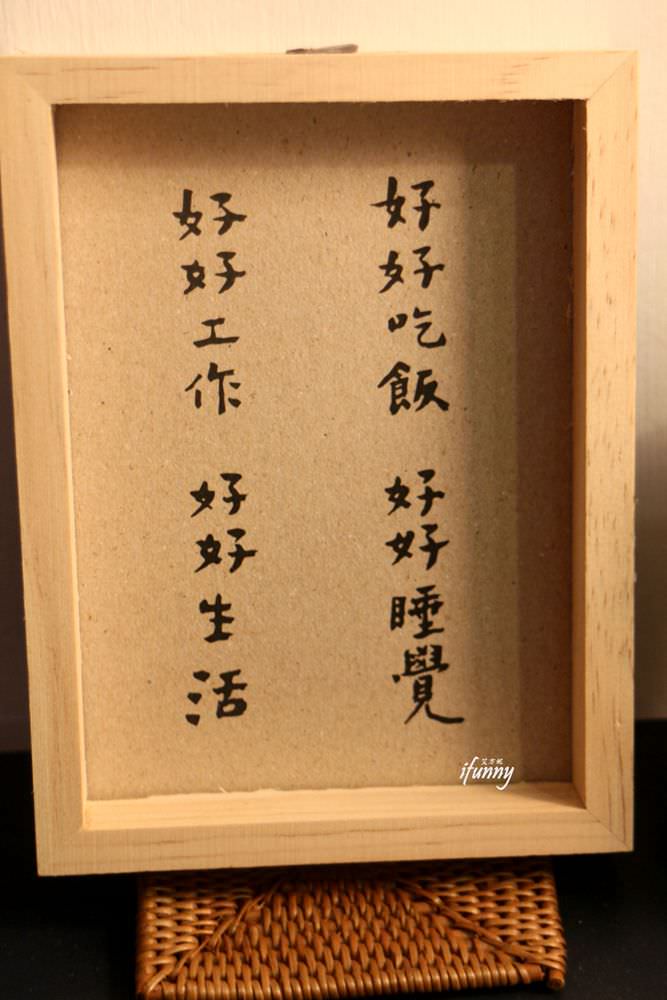 好好吃飯 好好睡覺
好好工作 好好生活
艾方妮
ifunny